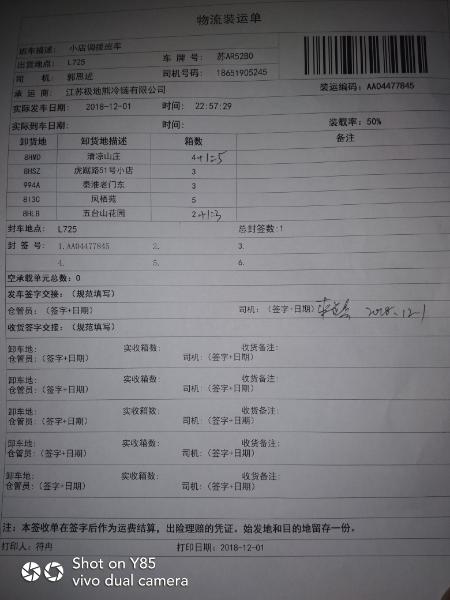 物流装运单
班车描述： 小店调拨班车
出货地点： L725 车 牌 号： 苏AR52B0
司 机： 郭思述 司机号码： 18651905245
承 运 商： 江苏极地熊冷链有限公司 装运编码：AA04477845
实际发车日期： 2018-12-01 时间： 22:57:29
实际到车日期： 时间： 装载率：50%
卸货地 卸货地描述 箱数 备注
8HWD 清凉山庄 4+1=5
8HSZ 虎踞路51号小店 3
994A 秦淮老门东 3
813C 凤栖苑 5
8HLB 五台山花园 2+1=3
封车地点： L725 总封签数：1
封 签 号： 1.AA04477845 2. 3.
4. 5. 6.
空承载单元总数：0
发车签字交接：（规范填写）
仓管员：（签字+日期） 司机：（签字+日期） 2018.12.1
收货签字交接：（规范填写）
卸车地： 实收箱数： 收货备注：
仓管员：（签字+日期） 司机：（签字+日期）
卸车地： 实收箱数： 收货备注：
仓管员：（签字+日期） 司机：（签字+日期）
卸车地： 实收箱数： 收货备注：
仓管员：（签字+日期） 司机：（签字+日期）
卸车地： 实收箱数： 收货备注：
仓管员：（签字+日期） 司机：（签字+日期）
卸车地： 实收箱数： 收货备注：
仓管员：（签字+日期） 司机：（签字+日期）
注：本签收单在签字后作为运费结算，出险理赔的凭证。始发地和目的地留存一份。
打印人：符冉 打印日期：2018-12-01
Shot on Y85
vivo dual camera